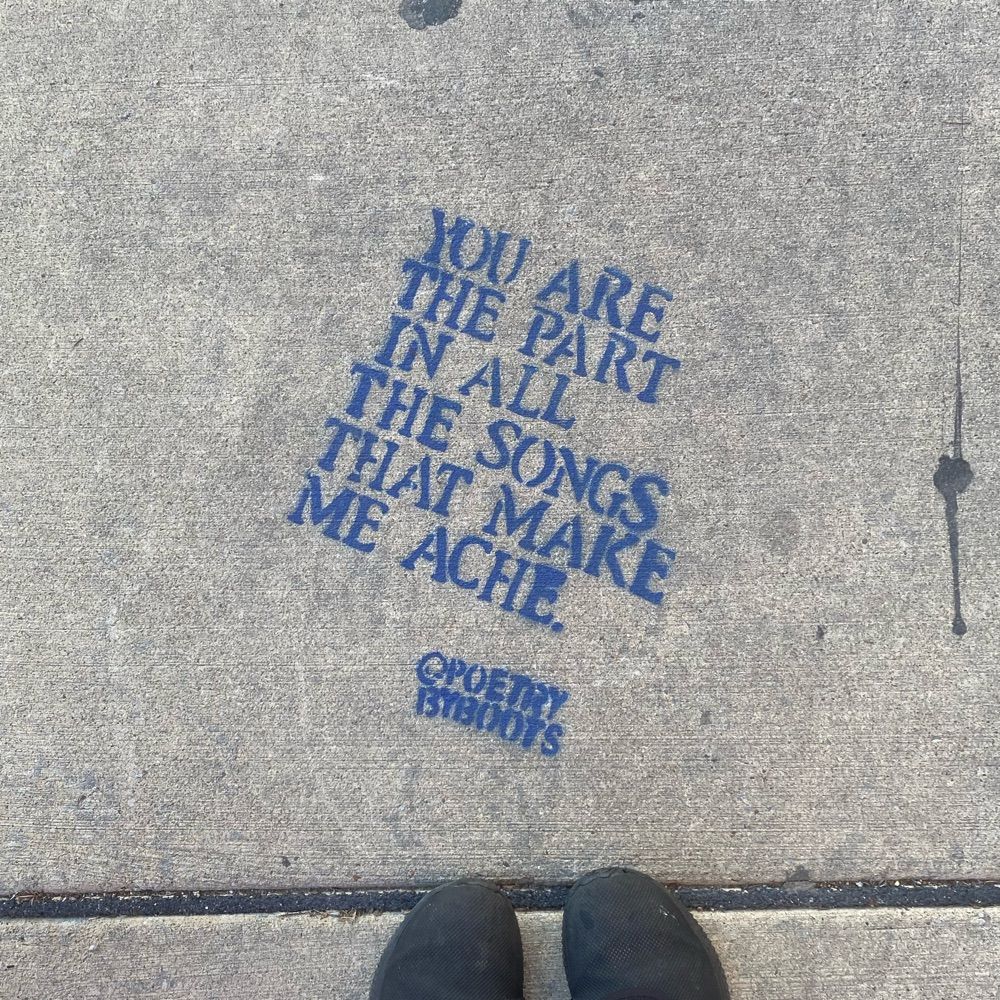 YOU ARE
THE PART
IN ALL
THE SONGS
THAT MAKE
ME ACHE.
@POETRY
BYBOOTS